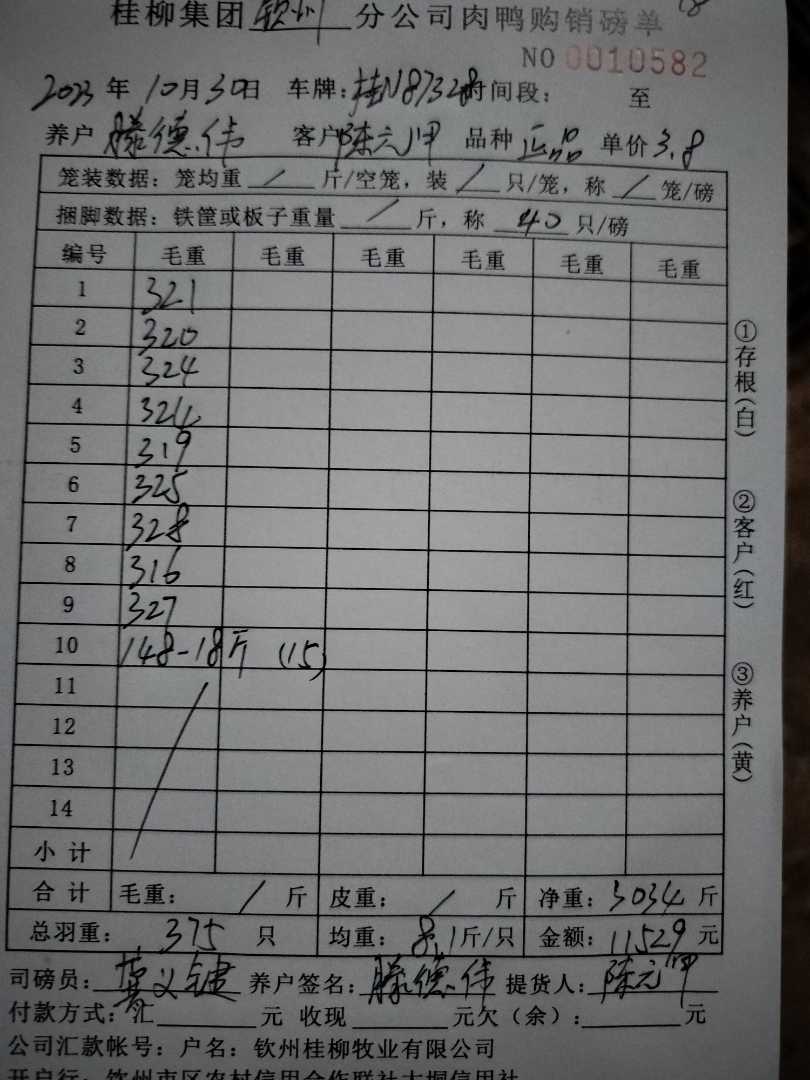 桂柳集团钦州分公司肉鸭购销磅单 18
NO 0010582
2023年10月30日 车牌:桂N87328时间段: 至
养户 滕德伟 客户 陈元甲 品种 正品 单价3.8
笼装数据:笼均重 / 斤/空笼,装 / 只/笼,称 / 笼/磅
捆脚数据:铁筐或板子重量 / 斤,称 40 只/磅
编号 毛重 毛重 毛重 毛重 毛重 毛重
1 321
2 320
3 324
4 324
5 319
6 325
7 328
8 316
9 327
10 148-18斤 (15)
11
12
13
14
小计
合计 毛重: / 斤 皮重: / 斤 净重:3034斤
总羽重: 375 只 均重: 8.1斤/只 金额:11529元
司磅员: 养户签名:滕德伟 提货人:陈元甲
付款方式:汇 元 收现 元欠(余): 元
公司汇款帐号:户名:钦州桂柳牧业有限公司
开户行:钦州市区农村信用合作联社大垌信用社
①存根(白)
②客户(红)
③养户(黄)